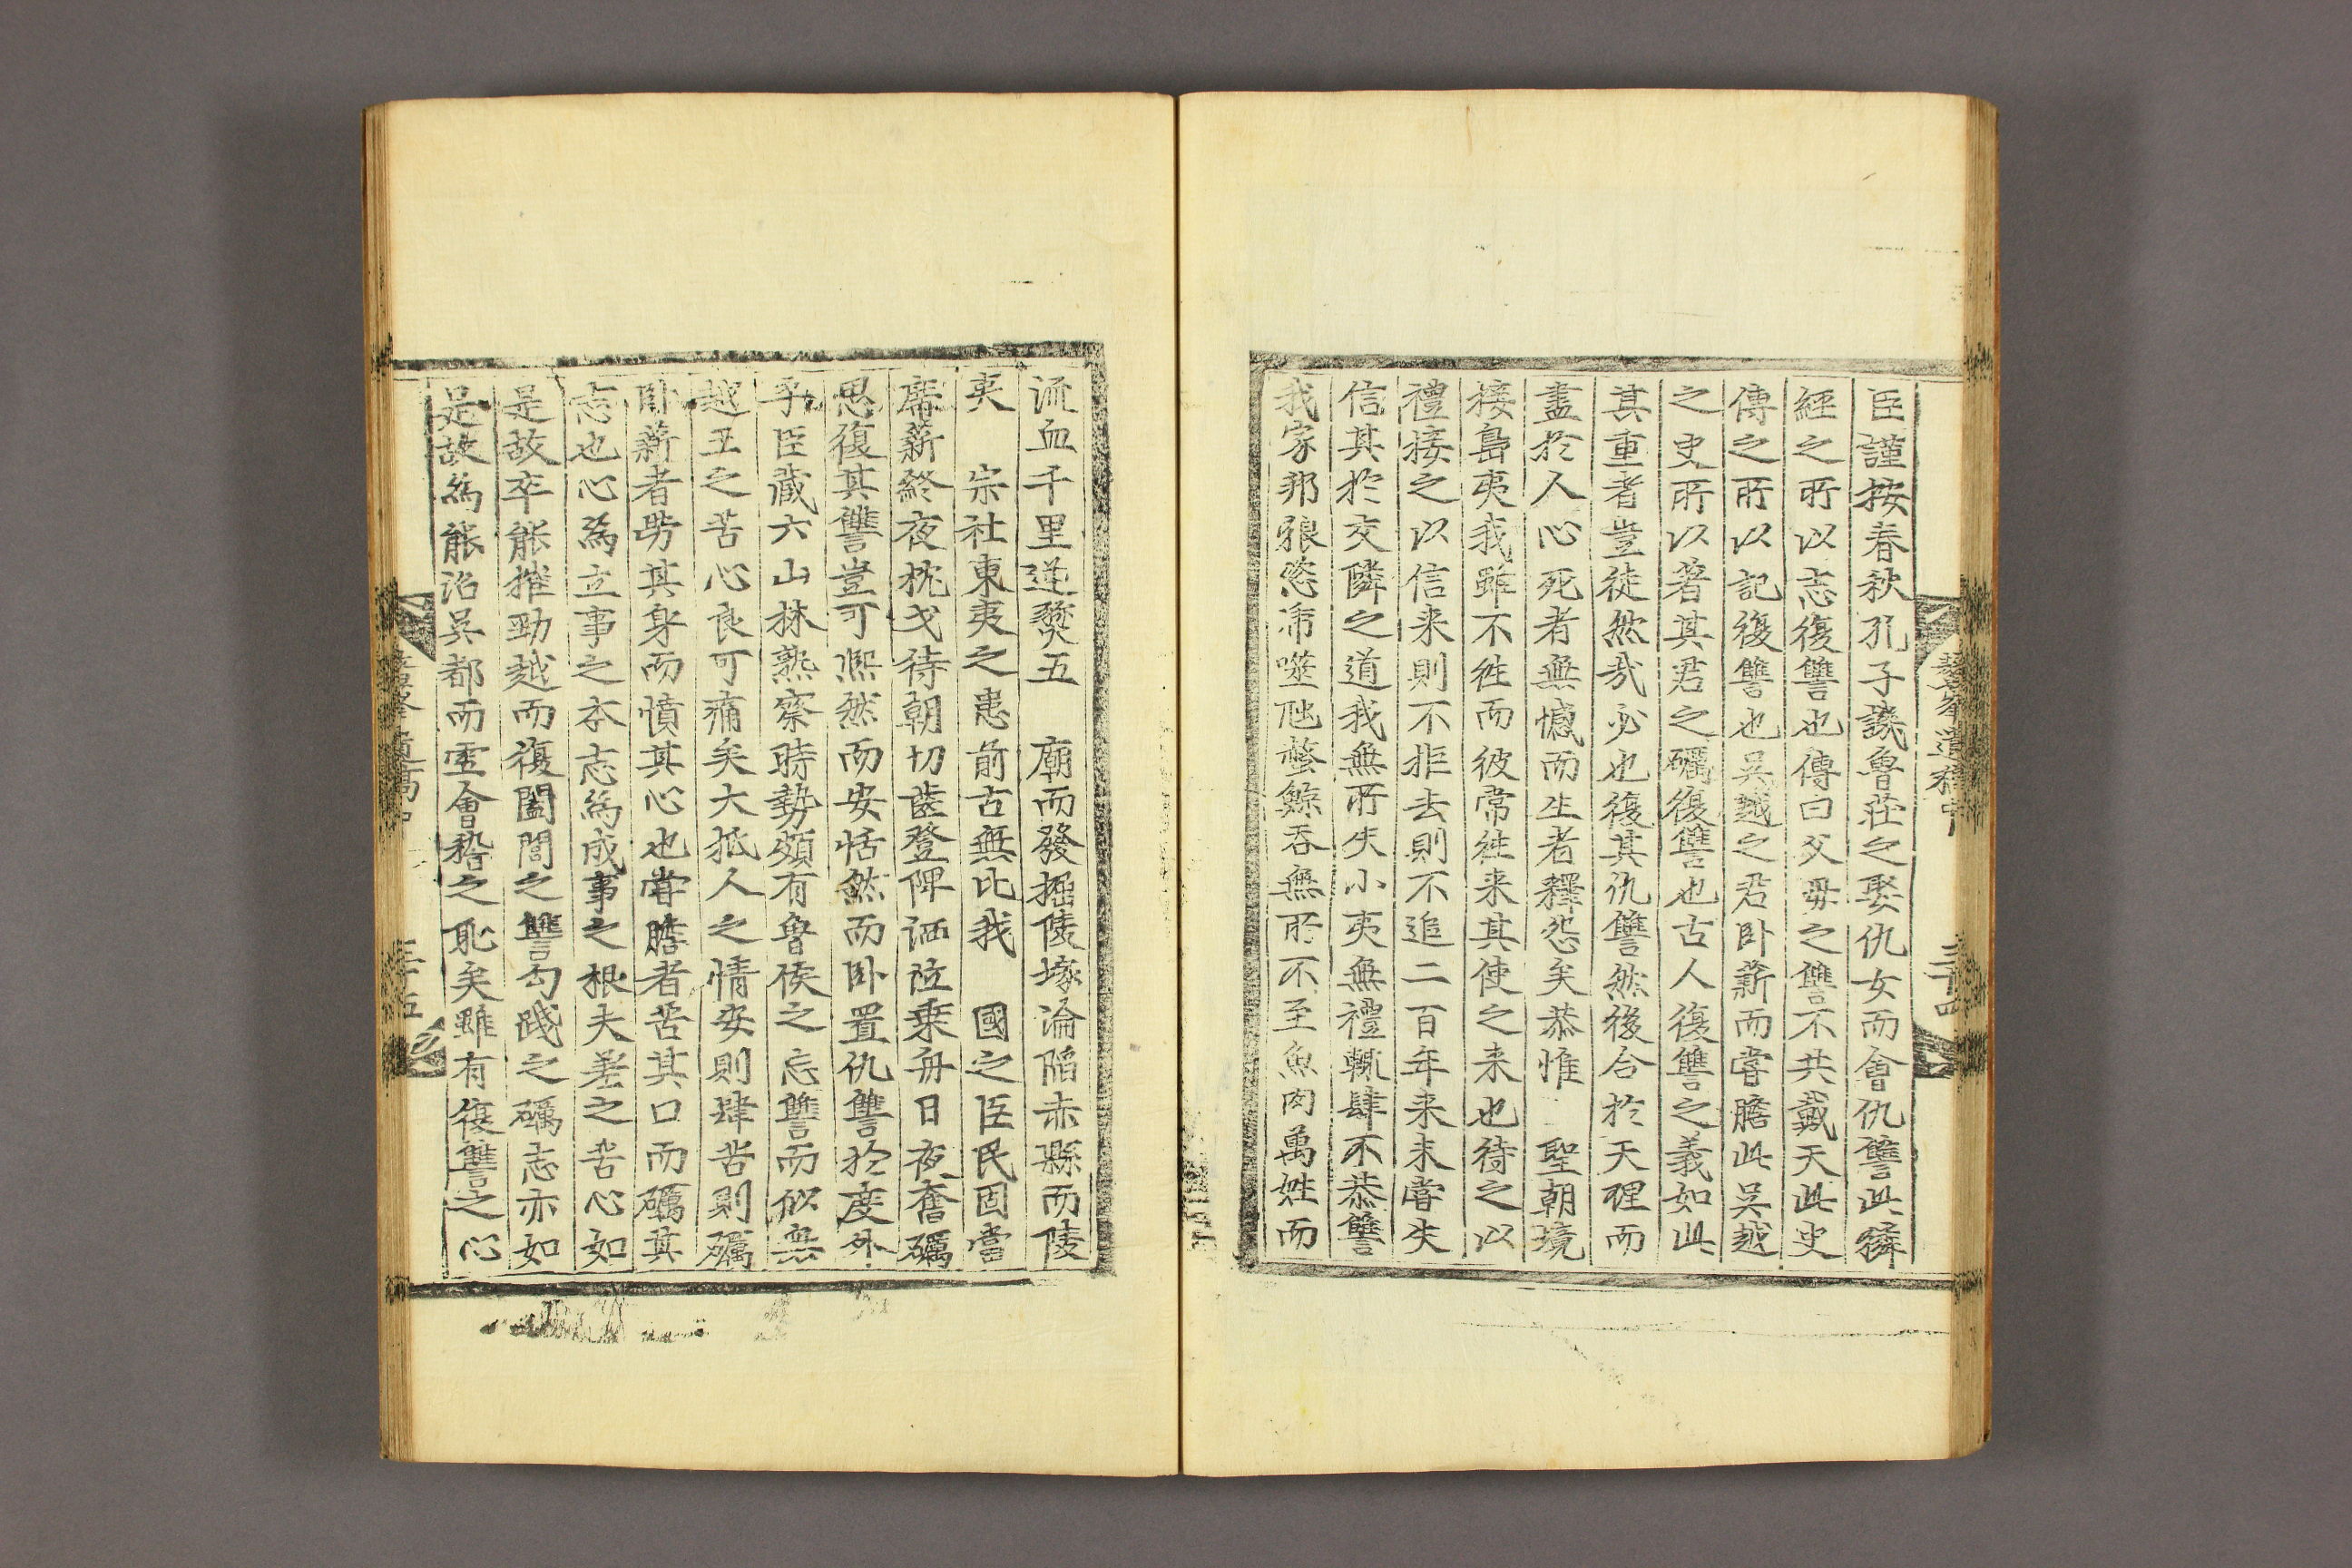 臣謹按春秋孔子譏魯莊之娶仇女而會仇讐此獜
經之所以志復讐也傳曰父毋之讐不共戴天此史
傳之所以記復讐也吳越之君卧薪而甞膽此吳越
之史所以著其君之礪復讐也古人復讐之義如此
其重者豈徒然㢤必也復其仇讐然後合於天理而
盡於人心死者無憾而生者釋怨矣恭惟 聖朝境
接島夷我雖不徃而彼常徃来其使之来也待之以
禮接之以信来則不拒去則不追二百年来未甞失
信其於交隣之道我無所失小夷無禮輒肆不恭讐
我家邦狼恣噬虺蜇鯨吞無所不至魚肉萬姓而
流血千里逆㷊五 廟而發掘陵塚淪陷赤縣而陵
夷 宗社東夷之患前古無比我 國之臣民固當
席薪終夜枕戈待朝切齒登陴洒泣乗舟日夜奮礪
思復其讐豈可熈然而安恬然而卧置仇讐於度外
乎臣藏六山林熟察時勢頗有魯侯之忘讐而似無
越王之苦心良可痛矣大抵人之情安則肆苦則礪
卧薪者勞其身而憤其心也甞膽者苦其口而礪其
志也心爲立事之夲志爲成事之根夫差之苦心如
是故卒能摧勁越而復闔閭之讐勾踐之礪志亦如
是故爲能沼吳都而雪會稽之耻矣雖有復讐之心
峯遺稿中 三十四
峯遺稿中 三十五